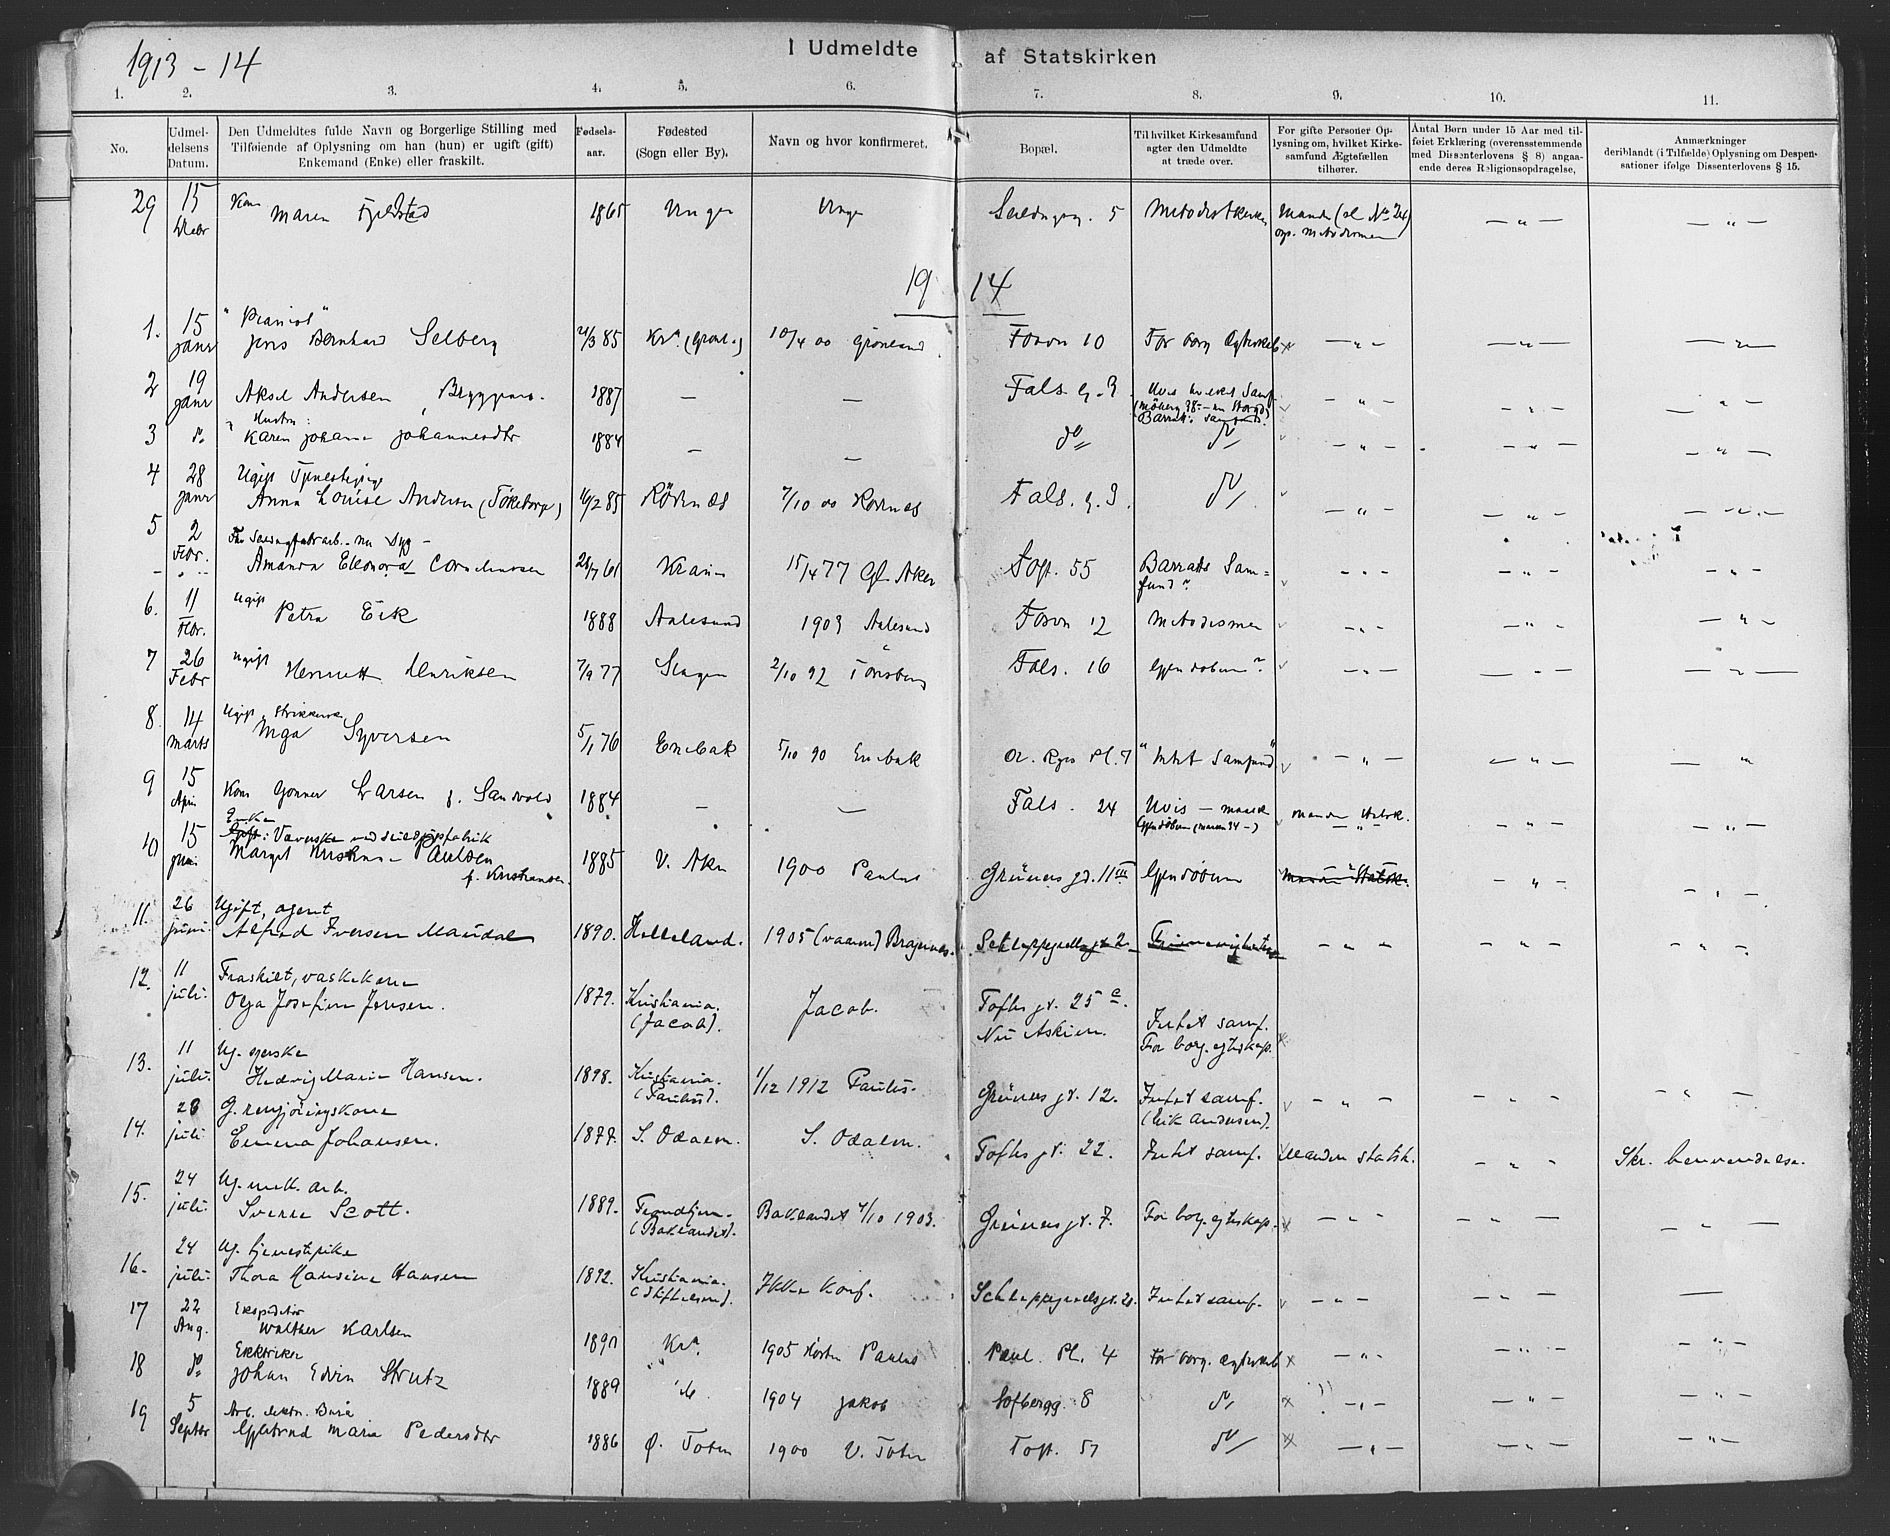 1913 - 14
I Udmeldte af Statskirken
1. 2. 3. 4. 5. 6. 7. 8. 9. 10. 11.
No.
Udmel-
delsens
Datum.
Den Udmeldtes fulde Navn og Borgerlige Stilling med
Tilføiende af Oplysning om han (hun) er ugift (gift)
Enkemand (Enke) eller fraskilt.
Fødsels-
aar.
Fødested
(Sogn eller By).
Navn og hvor konfirmeret.
Bopæl.
Til hvilket Kirkesamfund
agter den Udmeldte
at træde over.
For gifte Personer Op-
lysning om, hvilket Kirke-
samfund Ægtefællen
tilhører.
Antal Børn under 15 Aar med til-
føiet Erklæring (overensstemmende
med Dissenterlovens § 8) angaa-
ende deres Religionsopdragelse,
Anmærkninger
deriblandt (i Tilfælde) Oplysning om Dispen-
sationer ifølge Dissenterlovens § 15.
29 15 Kone Maren Fjeldstad 1865 Unge Unge 5 Metodistkirken Manden (cl No 24)
— " — — " —
19 14
1. 15 "Pianist"
janr Jens Bernhard Selberg 21/3 85 Kra. (Grønl.) 10/4 00 Grønland Fossv 10 For borg Egteskab x — " — — " — — " —
2 19
janr Aksel Andersen, Bryggearb. 1887 — — Fals. g. 3
Barratts Samfund.
3 do Hustru:
Karen Johanne Johannesdtr 1884 — — do do — " — — " — — " —
4 28 Ugift Tjenestepige
janr Anna Louise Andersen (Tøkeborg) 16/2 85 Rødenes 7/10 00 Rødenes Fals. g. 3 do — " — — " — — " —
5 2 nu Syg -
Febr. Amanda Eleonora Corneliussen 28/7 61 15/4 77 Gl. Aker Toft. 55 Barratts Sam=
fund" — " — — " — — " —
6. 11 Ugift
Febr. Petra Eik 1888 Aalesund 1903 Aalesund Fossv 12 Metodisme — " — — " — — " —
7 26 ugift
Febr Henriksen 7/9 77 Slagen 2/10 92 Tönsberg Fals. 16 Gjendøbere" — " — — " — — " —
8. 14 Ugift, strikkerske
Marts Inga Syversen 5/1 76 Enebak 5/10 90 Enebak Ol. Ryes Pl. 7 "Intet Samfund" — " — — " — — "
9 15
April Kone Gunner Larsen f. Sandvold 1884 — — Fals. 24 Uvis — — " — — " — — " —
10 15 Enke
Gift: Væverske ved seildugsfabrik
juni Margit Kristine Paulsen
f. Kristiansen. 1885 V. Aker 1900 Paulus Grüners gd. 11 III Gjendøbere Manden Statsk. — " — — " —
11. 26 Ugift, agent
juni. Alfred Iversen Mandal 1890. Helleland. 1905 (vaaren) Bragernes. Schleppegrells gt 2. — " — — " — — " —
12. 11 Fraskilt, vaskekone
juli. Olga Josefine Jensen. 1879. Kristiania.
(Jacob). Jacob. Tofts gt. 25 c.
Nu Askim. Intet samf.
For borg. egteskap. x
13. 11 Ug. syerske
juli. Hedvig Marie Hansen. 1898. Kristiania.
(Paulus). 1/12 1912 Paulus. Grüners gt. 12. Intet samf.
(Eik Andersen). — " — — " — — " —
14. 28 G. rengjøringskone
juli Emma Johansen. 1877. S. Odalen. S. Odalen. Tofts gt. 22. Intet samf. Manden statsk. — " — Skr. henvendelse.
15. 24 Ug. mek. arb.
juli. Sverre Scott. 1889. Trondhjem.
(Baklandet). Baklandet 4/10 1903. Grüners gt. 7. For borg. egteskap. x — " — — " — — " —
16. 24 Ug. tjenestepike
juli. Thora Hansine Hansen 1892. Kristiania.
(Stiftelsen). Ikke konf. Schleppegrells gt. 21. Intet samf. — " — ——
17 22 Ekspeditør
Aug. Walther Karlsen 1890 Kra. 1905 Høsten Paulus Paul. Pl. 4 For borg. egteskab x — " — — " — — " —
18 do Elektriker
Johan Edvin Strutz 1889 do 1904 Jakob Sofiebergg. 8 do x — " — — " — — " —
19 5
Septbr Gjertrud Marie Pedersdtr 1886 Ø. Toten 1900 V. Toten Toft. 51 do x — " — — " — — " —